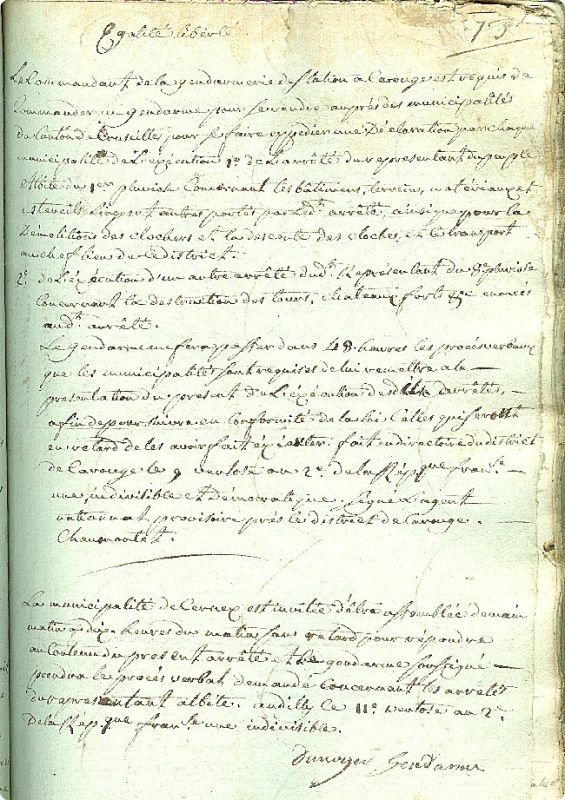 73
Egalité liberté
Le Commandant de la gendarmerie de station a Carouge est requis de
Commander un gendarme pour se rendre auprès des municipalités
du Canton de Conseilles pour se faire expedier une Déclaration par chaque
municipalité de L'exécution 1º de L'arrêté du representant du peuple
Albite du 1er pluviose Concernant les bâtimens, terreins, matériaux et
autres portés par led.t arrêté, ainsi que pour la
Démolitions des clochers et la descente des cloches, et le transport
au chef lieu de le district.
2º. de L'éxécution d'un autre arrêté dudt. Représentant du pluviose
Concernant la destruction des tours, chateaux forts énoncés
audt. arrêté.
Le gendarme me fera passer dans 48 heures les procésverbaux
que les municipalités sont requises de lui remettre a la —
presentation du présent de L'éxécution desdits arrêtés, —
afin de poursuivre en Conformité de la loi Celles qui seront
en retard de les avoir fait éxécuter. fait en directoire du district
de Carouge le 9 ventose an 2e. de la Répque. franse. —
une, indivisible et democratique. signé L'agent
national provisoire près le district de Carouge. —
Chaumontet.
La municipalité de Cernex est invitée d'être assemblée demain
matin a dix heures du matin sans retard pour répondre
au Contenu du présent arrêté et le gendarme soussigné —
prendra le procés verbal demandé concernant les arretés
du representant albite. andilly ce 11e. ventose an 2e.
de la Répque franse. une indivisible.
Dunoyer Gendarme